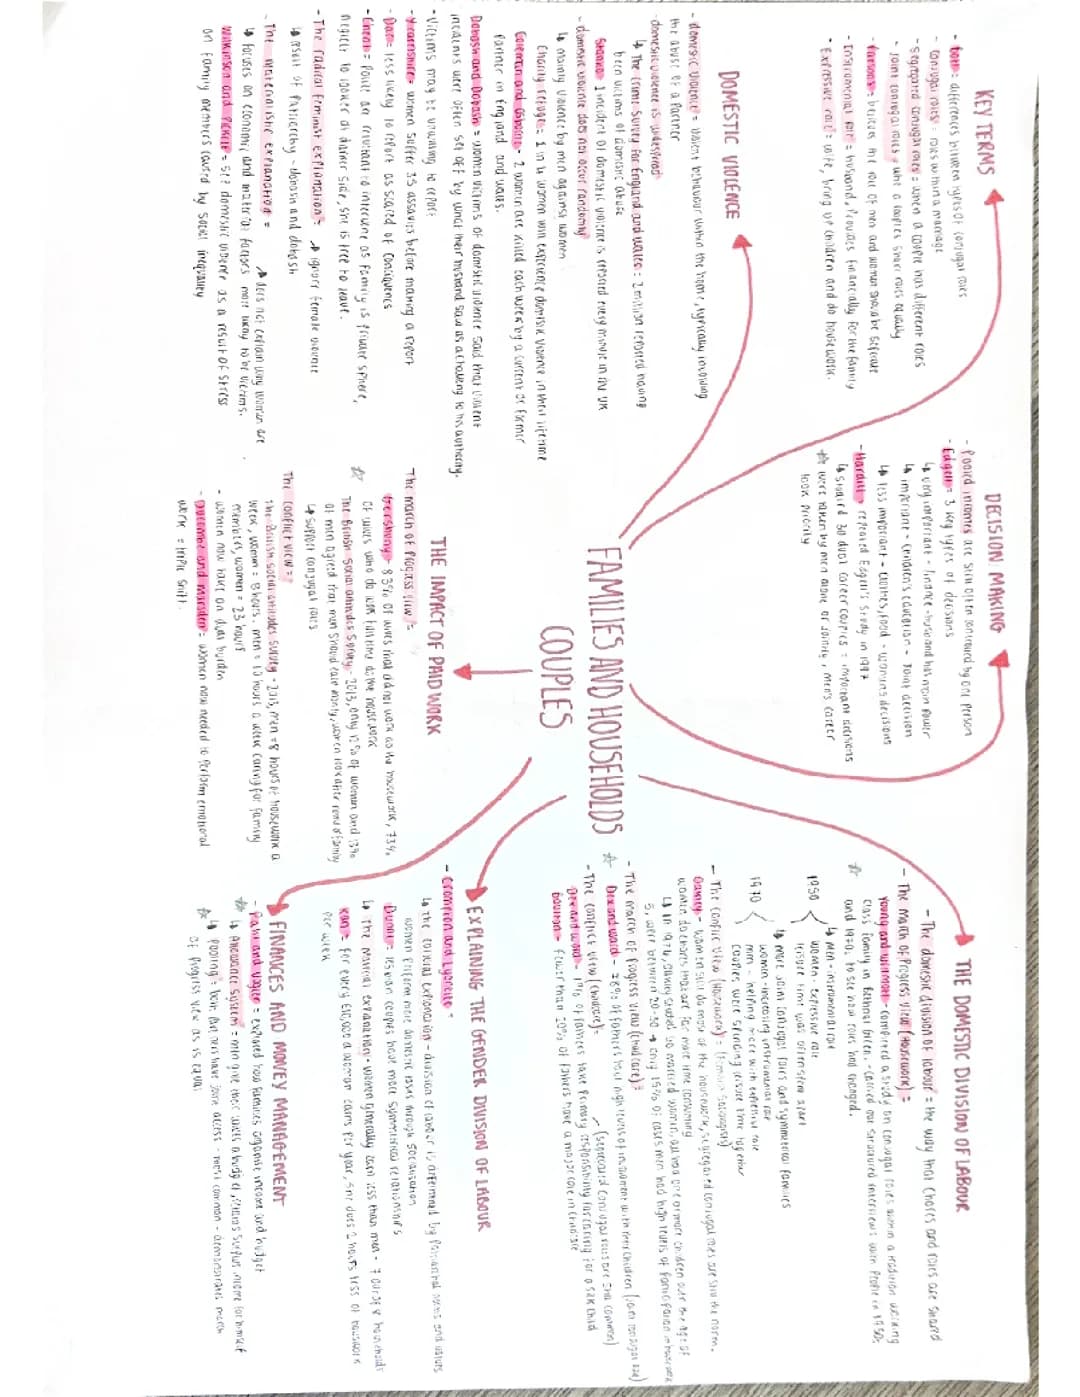 FAMILIES AND HOUSEHOLDS
COUPLES
KEY TERMS
- Bott = differences between types of conjugal roles
- conjugal roles = roles within a marriage
- segregated conjugal roles = when a couple has different roles
- Joint conjugal roles = when a couples share roles equally
- Parsons = believes the role of men and women should be separate
- Instrumental role = husband, provides financially for the family
- Expressive role = wife, bring up children and do housework.
DECISION MAKING
- Pooled incomes are still often controlled by one person
- Edgell = 3 key types of decisions
↳ very important - finance - husband has main power
↳ important - children's education - joint decision
↳ less important - clothes, food - womens decisions
- Hardill = repeated Edgell's study in 1997
↳ studied 30 dual career couples = important decisions
☆ were taken by men alone or jointly, men's career
took priority
THE DOMESTIC DIVISION OF LABOUR
- The domestic division of labour = the way that chores and roles are shared
- The march of Progress view (Housework) =
Young and Willmott - completed a study on conjugal roles within a tradition working
class family in Bethnal Green. - carried out structured interviews with people in 1950s
and 1970s to see how roles had changed.
1950 < men - instrumental role
women - expressive role
leisure time was often spent apart
↳ more joint conjugal roles and symmetrical families
1970 < women - increasing instrumental role
men - helping more with expressive role
couples were spending leisure time together
- The conflict view (Housework) =
Oakley - women still do most of the housework, segregated conjugal roles are still the norm.
women do chores that are far more time consuming
↳ in 1974, Oakley studied 40 married women, all had one or more children over the age of
5, were between 20-30 → only 15% of cases men had high levels of participation in housework
- The march of Progress view (childcare) =
☆ Dex and Ward = 78% of fathers had high levels of involvement with their children (joint conjugal role)
- The conflict view (childcare) =
(segregated conjugal roles are still common)
Dex and Ward - 1% of fathers take primary responsibility for caring for a sick child
Boulton = fewer than 20% of fathers have a major role in childcare
DOMESTIC VIOLENCE
- domestic violence = violent behaviour within the home, typically involving
the abuse of a partner
- domestic violence is widespread
↳ The Crime Survey for England and Wales = 2 million reported having
been victims of domestic abuse
1 incident of domestic violence is reported every minute in the UK
- domestic violence does not occur randomly
↳ mainly violence by men against women
Charity refuge = 1 in 4 women will experience domestic violence in their lifetime
Coleman and Osborne - 2 women are killed each week by a current or former
partner in England and Wales.
Dobash and Dobash = women victims of domestic violence said that violent
incidents were often set off by what their husband saw as a challenge to his authority.
- Victims may be unwilling to report
- Yearnshire = women suffer 35 assaults before making a report
- Dar = less likely to report as scared of consequences
- Cheal = Police are reluctant to intervene as family is private sphere,
neglect to look at darker side, she is free to leave.
- The radical feminist explanation =
→ ignore female violence
↳ result of patriarchy - dobash and dobash
- The materialist explanation =
→ does not explain why women are
↳ focuses on economic and material factors more likely to be victims.
Wilkinson and Pickett = see domestic violence as a result of stress
on family members caused by social inequality
THE IMPACT OF PAID WORK
The march of Progress view =
Gershuny - 83% of wives that did not work do the housework, 73%
of wives who do work full time do the housework
☆ The British Social attitudes Survey - 2013, only 12% of women and 13%
of men agreed that men should earn money, women look after home & family
↳ support conjugal roles
The conflict view =
The British social attitudes survey - 2013, men = 8 hours of housework a
week, women = 13 hours. men = 10 hours a week caring for family
members, women = 23 hours
- women now have an dual burden
- Duncombe and Marsden = women now needed to perform emotional
work = triple shift.
EXPLAINING THE GENDER DIVISION OF LABOUR
- Crompton and Lyonette =
↳ The cultural explanation - division of labour is determined by Patriarchal norms and values
women perform more domestic tasks through socialisation
Dunne = lesbian couples have more symmetrical relationships
↳ The material explanation - women generally earn less than men -
Kan = for every £10,000 a woman earns per year, she does 2 hours less of housework
per week
FINANCES AND MONEY MANAGEMENT
- Pahl and Vogler = explored how families organise income and budget
☆ ↳ Allowance System = men give their wives a budget, retains surplus income for himself
☆ ↳ Pooling = both partners have joint access - most common - demonstrates march
of progress view as is equal